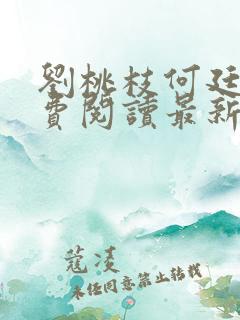 劉桃枝何廷
費閱讀最新
蔻凌
未經同意禁止轉載